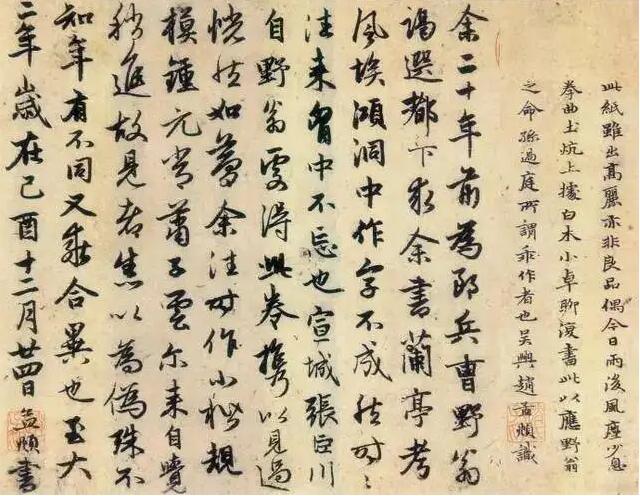 此紙雖出高麗亦非良品偶今日雨後風塵少息
拳曲土炕上據白木小卓聊復書此以應野翁
之命孫過庭所謂乖作者也吳興趙孟頫識
余二十年前為郎兵曹野翁
謁選都下求余書蘭亭考
風埃澒洞中作字不成然時〻
往來胷中不忘也宣城張巨川
自野翁處得此卷攜以見過
恍然如夢余往時作小楷規
模鍾元常蕭子雲尒來自覺
稍進故見者悉以為偽殊不
知年有不同又乖合異也至大
二年歲在己酉十二月廿四日孟頫書